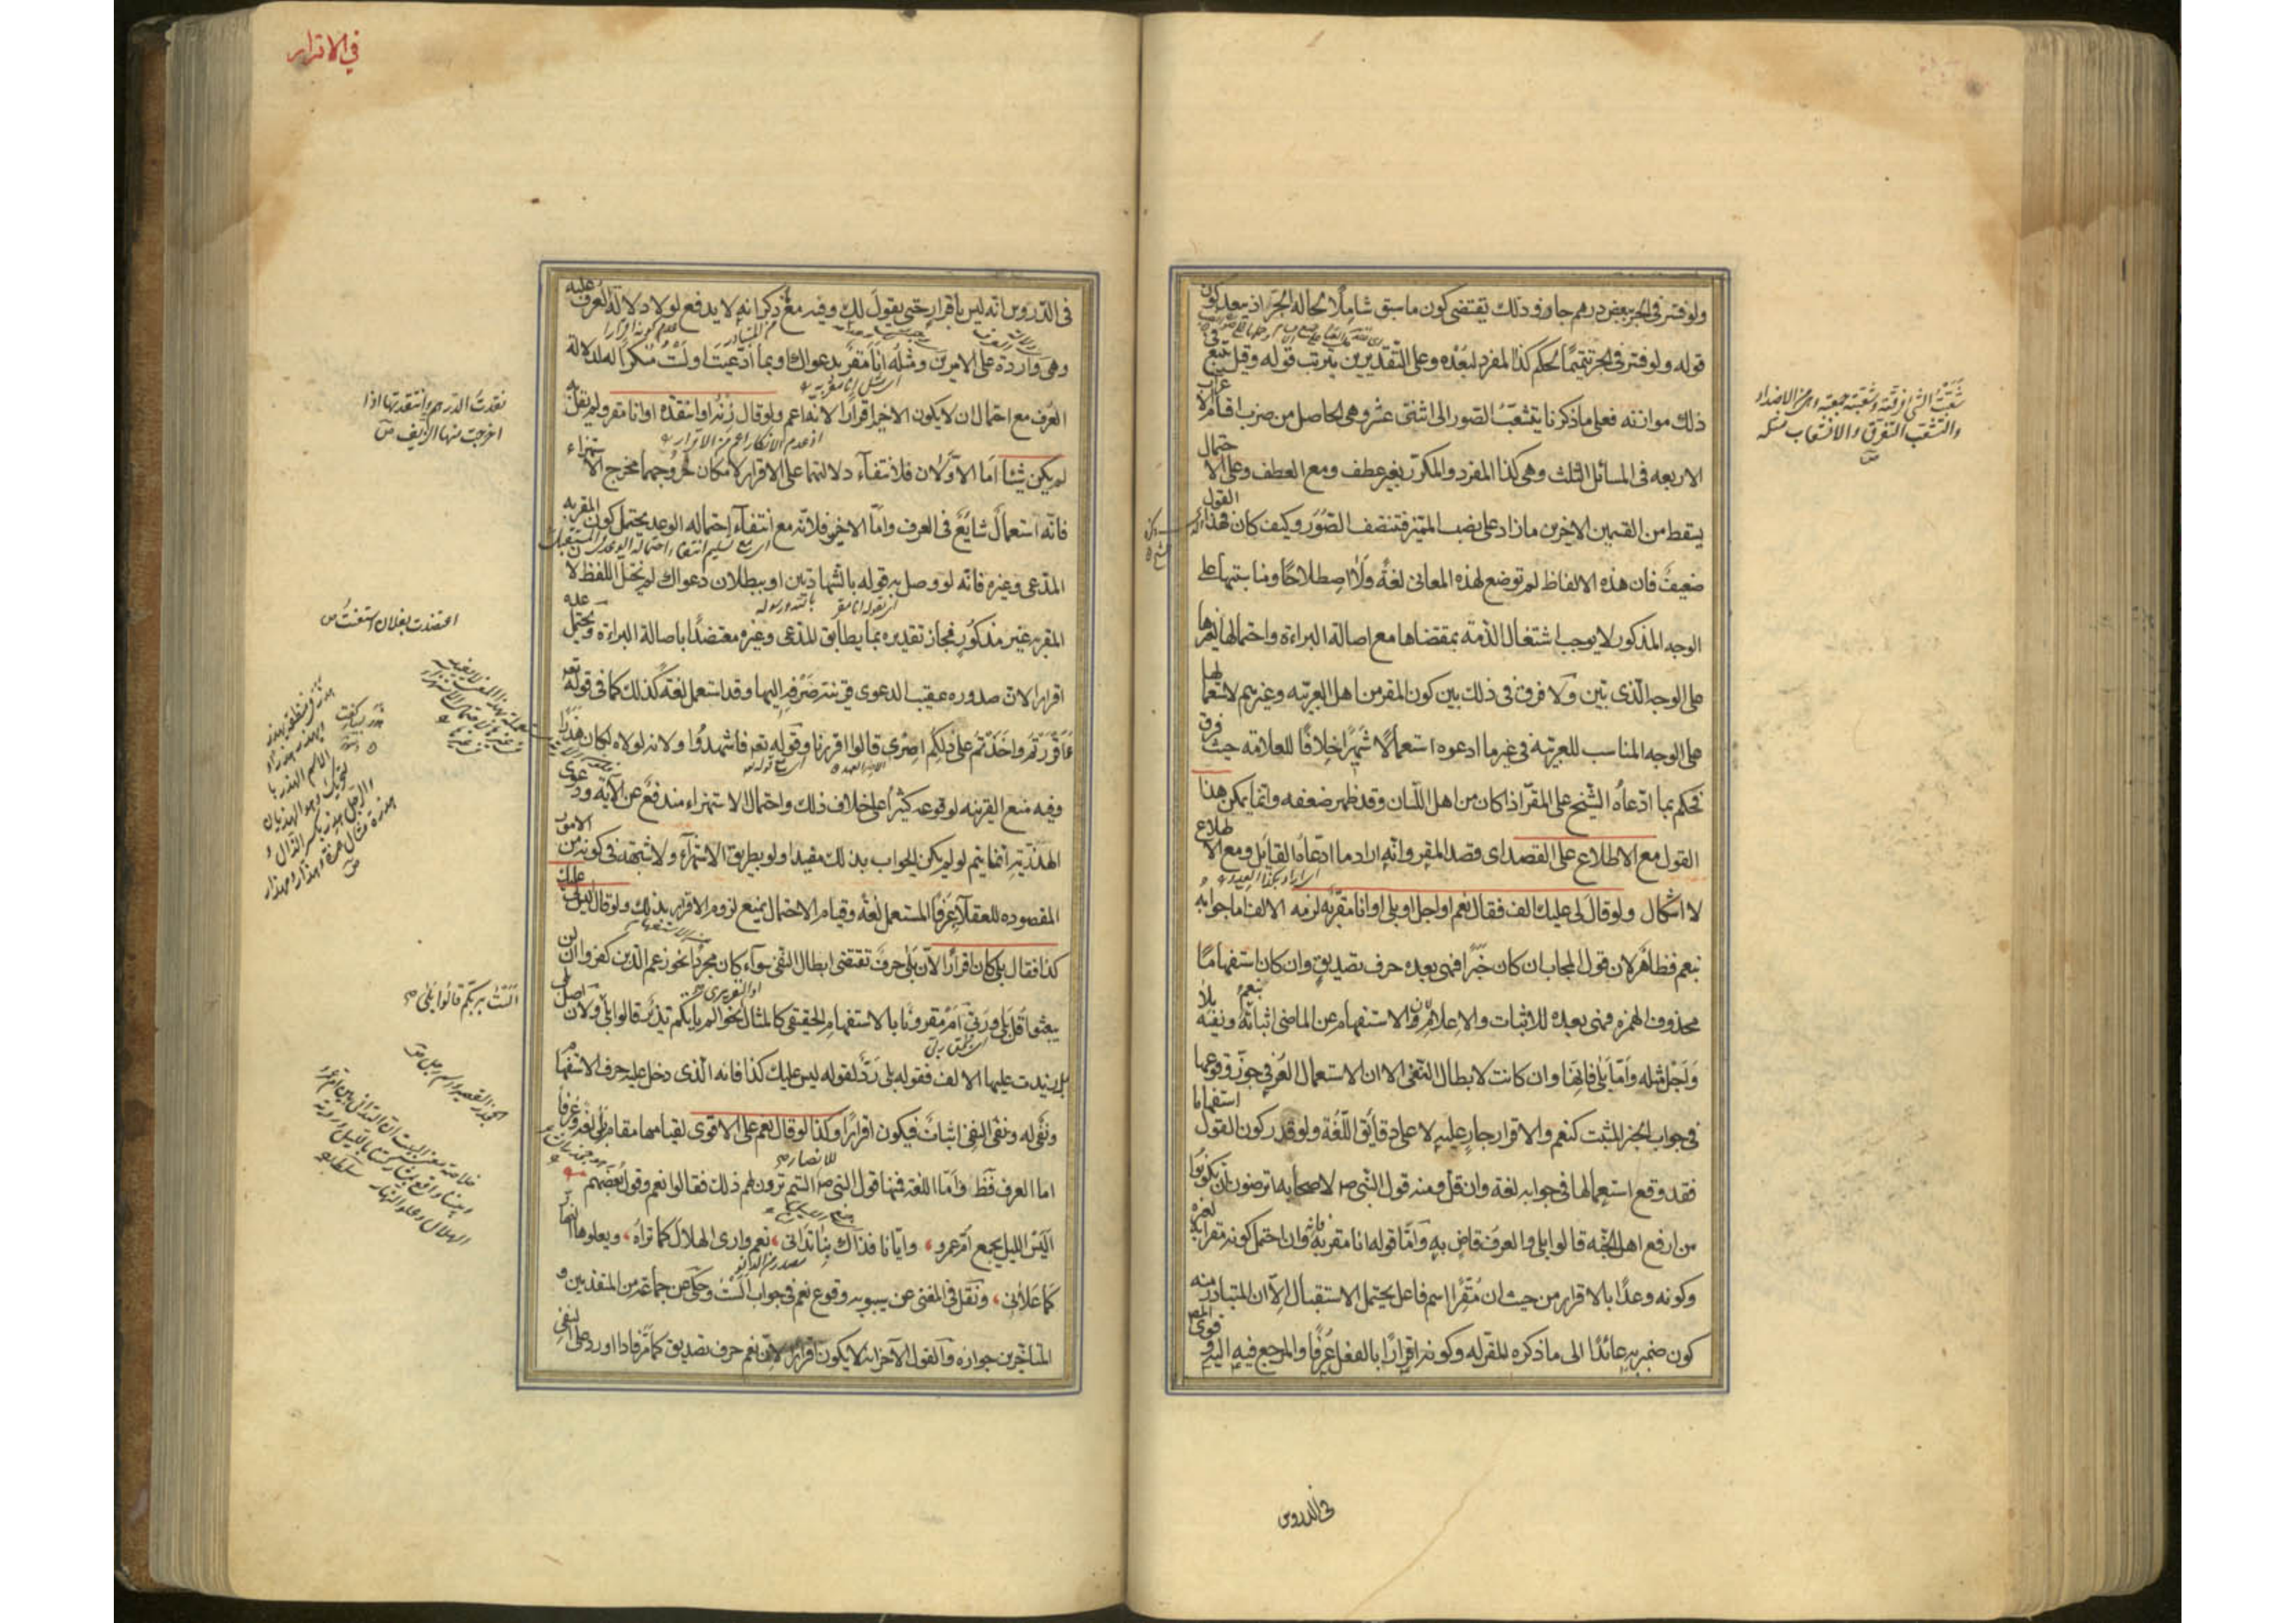 ولو فسر في الجر ببعض درهم جاز وذلك يقتضي كون ما سبق شاملا لحالة الجر اذ يبعد كون
قوله ولو فسر في الجر تتميما لحكم كذا المفرد لبعده وعلى التقديرين يترتب قوله وقيل يتبع في
ذلك موازنه فعلى ما ذكرنا يتشعب الصور الى اثنتى عشر وهي الحاصل من ضرب اقسام الاعراب
الاربعه في المسائل الثلث وهي كذا المفرد والمكرر بغير عطف ومع العطف وعلى الاحتمال
يسقط من القسمين الاخيرين ما زاد على نصب المميز فتنصف الصور وكيف كان فهذا القول
ضعيف فان هذه الالفاظ لم توضع لهذه المعاني لغة ولا اصطلاحا ومناسبتها على
الوجه المذكور لا يوجب اشتغال الذمة بمقتضاها مع اصالة البراءة واحتمالها لغيرها
على الوجه الذي بين ولا فرق في ذلك بين كون المقر من اهل العربيه وغيرهم لاستعمالها
على الوجه المناسب للعربيه في غير ما ادعوه استعمالا شهيرا خلافا للعلامه حيث فرق
فحكم بما ادعاه الشيخ على المقر اذا كان من اهل اللسان وقد ظهر ضعفه وانما يمكن هذا
القول مع الاطلاع على القصد اى قصد المقر وانه اراد ما ادعاه القائل ومع الاطلاع
لا اشكال ولو قال لي عليك الف فقال نعم او اجل او بلى او انا مقر به لزمه الالف اما جوابه
بنعم فظاهر لان قول المجاب ان كان خبرا فهي بعده حرف تصديق وان كان استفهاما
محذوف الهمزه فهي بعده للاثبات والاعلام لان الاستفهام عن الماضي اثباته بنعم ونفيه بلا
واجل مثله واما بلى فانها وان كانت لابطال النفي الا ان الاستعمال العرفي جوز وقوعها
في جواب الخبر المثبت كنعم والاقرار جار عليه لا على دقائق اللغة ولو قدر كون القول استفهاما
فقد وقع استعمالها في جوابه لغة وان قل ومنه قول النبي ص لاصحابه اترضون ان تكونوا
من ارفع اهل الجنه قالوا بلى والعرف قاض به واما قوله انا مقر به فانه وان احتمل كونه مقرا به لغيره
وكونه وعدا بالاقرار من حيث ان مقرا اسم فاعل يحتمل الاستقبال الا ان المتبادر منه
كون ضمير به عائدا الى ما ذكره المقر له وكونه اقرارا بالفعل عرفا والمرجع فيه اليه وقوى المص
في الدروس
شعبت الشئ فرقته وشعبته جمعته وهو من الاضداد
والتشعب التفرق والانشعاب مثله
ص
في الاقرار
في الدروس انه ليس باقرار حتى يقول لك وفيه مع ذكرا انه لا يدفع لولا دلالة العرف عليه
وهي واردة على الامرين ومثله انا مقر بدعواك وبما ادعيت او لست منكرا له لدلالة
العرف مع احتمال ان لا يكون الاخير اقرارا لانه اعم ولو قال زنه او انتقده او انا مقر ولم يقل به
لم يكن شيئا اما الاولان فلانتفاء دلالتهما على الاقرار لامكان خروجهما مخرج الاستهزاء
فانه استعمال شائع في العرف واما الاخير فلانه مع انتفاء احتماله الوعد يحتمل كون المقر به
المدعى وغيره فانه لو وصل به قوله بالشهادتين او ببطلان دعواك لم يختل اللفظ لان
المقر به غير مذكور فجاز تقديره بما يطابق المدعى وغيره معتضدا باصالة البراءة ويحتمل عده
اقرارا لان صدوره عقيب الدعوى قرينة صرفه اليها وقد استعمل لغة كذلك كما في قوله تعه
ءاقررتم واخذتم على ذلكم اصرى قالوا اقررنا وقوله تعه فاشهدوا ولانه لولاه لكان هذرا
وفيه منع القرينه لوقوعه كثيرا على خلاف ذلك واحتمال الاستهزاء مندفع عن الآيه ودعوى
الهذرية انما يتم لو لم يكن الجواب بذلك مفيدا ولو بطريق الاستهزاء ولا شبهة في كونه من الامور
المقصوده للعقلاء عرفا المستعمل لغة وقيام الاحتمال يمنع لزوم الاقرار بذلك ولو قال اليس لي عليك
كذا فقال بلى كان اقرارا لان بلى حرف تقتضى ابطال النفي سواء كان مجردا نحو زعم الذين كفروا ان لن
يبعثوا قل بلى وربي ام مقرونا بالاستفهام الحقيقى كالمثال نحو الم ياتكم نذير قالوا بلى ولان اصل بلى
بل زيدت عليها الالف فقوله بلى رد لقوله ليس عليك كذا فانه الذى دخل عليه حرف الاستفهام
ونفى له ونفى النفي اثبات فيكون اقرارا وكذا لو قال نعم على الاقوى لقيامها مقام بلى لغة وعرفا
اما العرف فظ واما اللغة فمنها قول النبي ص للانصار الستم ترون لهم ذلك فقالوا نعم وقول بعضهم
اليس الليل يجمع ام عمرو، وايانا فذاك بنا تداني، نعم وارى الهلال كما تراه، ويعلوها النهار
كما علاني، ونقل في المغنى عن سيبويه وقوع نعم في جواب الست وحكى عن جماعة من المتقدمين و
المتاخرين جوازه والقول الآخر انه لا يكون اقرارا لان نعم حرف تصديق كما مر فاذا اورد على النفي
نقدت الدرهم وانتقدتها اذا
اخرجت منها الزيف ص
اعتضدت بفلان استعنت ص
الست بربكم قالوا بلى